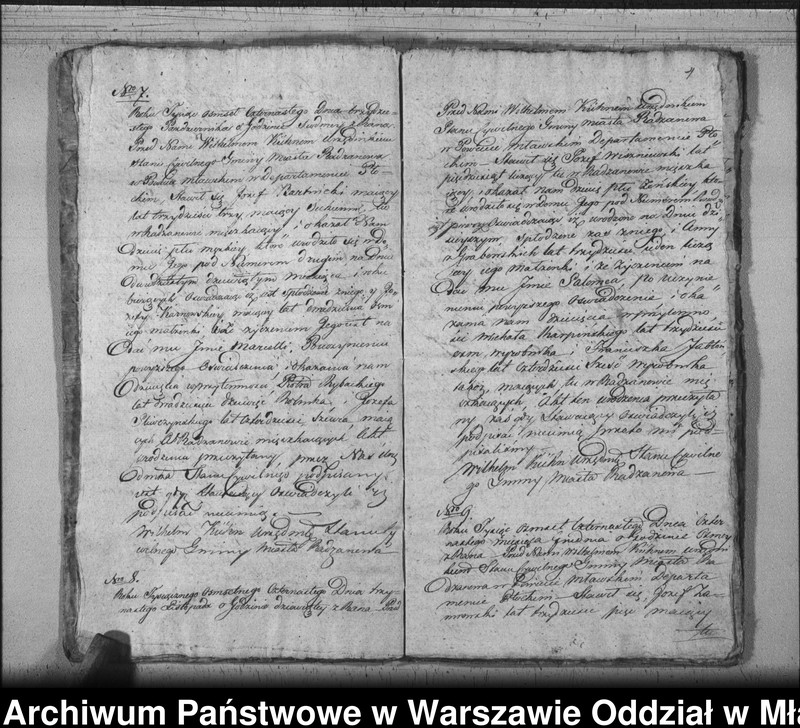 Nro 7.
Roku Tysiąc osmset Czternastego Dnia trzydzie-
stego Października o Godzinie Siodmey z Rana.
Przed Nami Wilhelmem Kühnem Urzędnikiem
Stanu Cywilnego Gminy Miasta Radzanowa
w Powiecie Mławskim w Departamencie Pło-
ckim, Stawił się Jozef maiący
lat trzydzieści trzy, maiący tu
w Radzanowie mieszkaiący i okazał Nam
Dziecie płci męskiey, ktore urodziło się w Do-
mu Jego pod Numerem drugim, na Dniu
Dwudziestym dziewiątym miesiąca i roku
bieżących Oswiadczaiąc iż iest spłodzone z niego, y Jo-
zefy maiący lat dwadzieścia osm
iego małżonki iż życzeniem Jego iest na
Dać mu Jmie Marcelli. Po uczynieniu
powyższego Oswiadczenia i okazania nam
Dziecięcia w przytomności Piotra Rybackiego
lat Rolnika i Jozefa
lat Czterdzieści maią
cych w Radzanowie mieszkaiących Akt
urodzenia przeczytany przez Nas Urzę
dnika Stanu Cywilnego podpisany
iest gdy Stawaiący Oswiadczyli iż
podpisać nieumieią.
Wilhelm Kühn Urzędnik Stanu Cy
wilnego Gminy Miasta Radzanowa
Nro 8.
Roku Tysiącznego Osmsetnego Czternastego Dnia trzy
nastego Listopada o Godzinie dziewiątey z Rana Przed
4
Przed Nami Wilhelmem Kühnem Urzędnikiem
Stanu Cywilnego Gminy Miasta Radzanowa
w Powiecie Mławskim Departamencie Pło
ckim Stawił się Jozef Wiszniewski lat
pięcdziesiąt liczący tu w Radzanowie mieszka
iący, i okazał nam Dziecie płci Żeńskiey kto
re urodziło się w domu Jego pod Numerem
Oswiadczaiąc iż urodzone na Dniu dzi
sieyszym, Spłodzone zas z niego i Anny
z Grabowskich lat trzydzieści ieden liczą
cey iego Małżonki, i że życzeniem na
Dać mu Jmie Salomea, po uczynie
niu powyższego Oswiadczenia i oka
zania nam Dziecięcia w przytomno
ści Michała Karpińskiego lat trzydzieści
osm wyrobnika i Franciszka Jabłoń
skiego lat Czterdzieści Sześć Wyrobnika
także, maiących tu w Radzanowie miesz
czkaiących, Akt ten urodzenia przeczyta
ny zaś gdy Stawaiący Oswiadczyli iż
podpisać nieumieią, przeto my pod-
pisaliśmy
Wilhelm Kühn Urzędnik Stanu Cywilne
go Gminy Miasta Radzanowa
Nro 9.
Roku Tysiąc Osmset Czternastego Dnia Czter
nastego Miesiąca Grudnia o Godzinie Osmey
z Rana Przed Nami Wilhelmem Kühnem Urzędni
kiem Stanu Cywilnego Gminy Miasta Ra
dzanowa w Powiecie Mławskim Departa
mencie Płockim Stawił się Jozef Za
lat trzydzieści pięć maiący
tu
Archiwum Państwowe w Warszawie Oddział w Mła